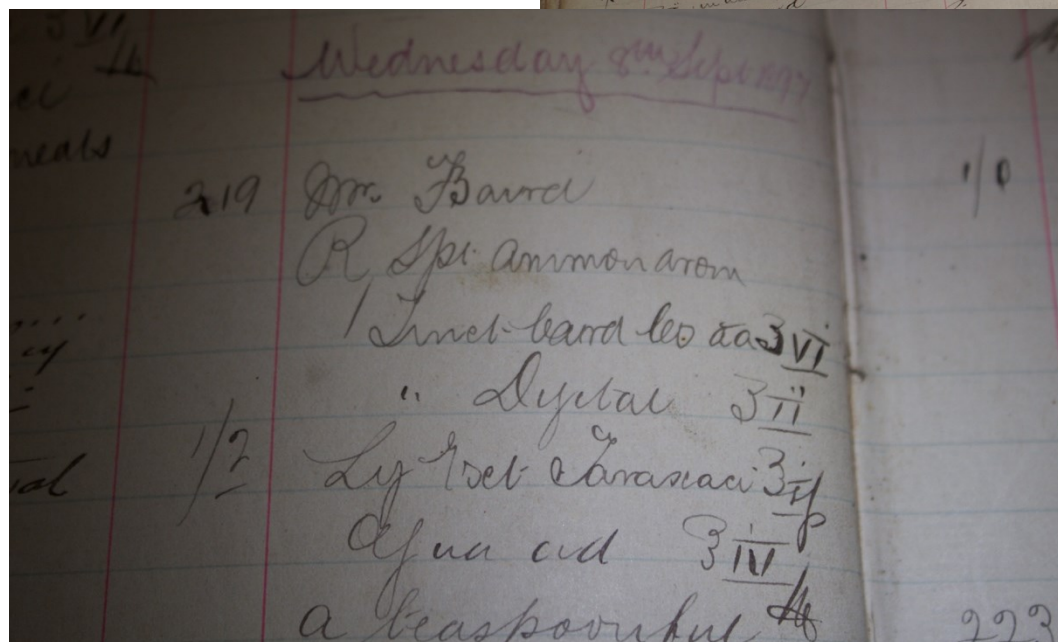 Wednesday 8th Sept 1897
219 Mr. Baird 1/0
R Spt ammon arom
Tinct card co aa ʒ VI
" Dijital ʒ ii
1/2 Liq Ext Taraxaci ʒ
Aqua ad ʒ IV
a teaspoonful
223
neals